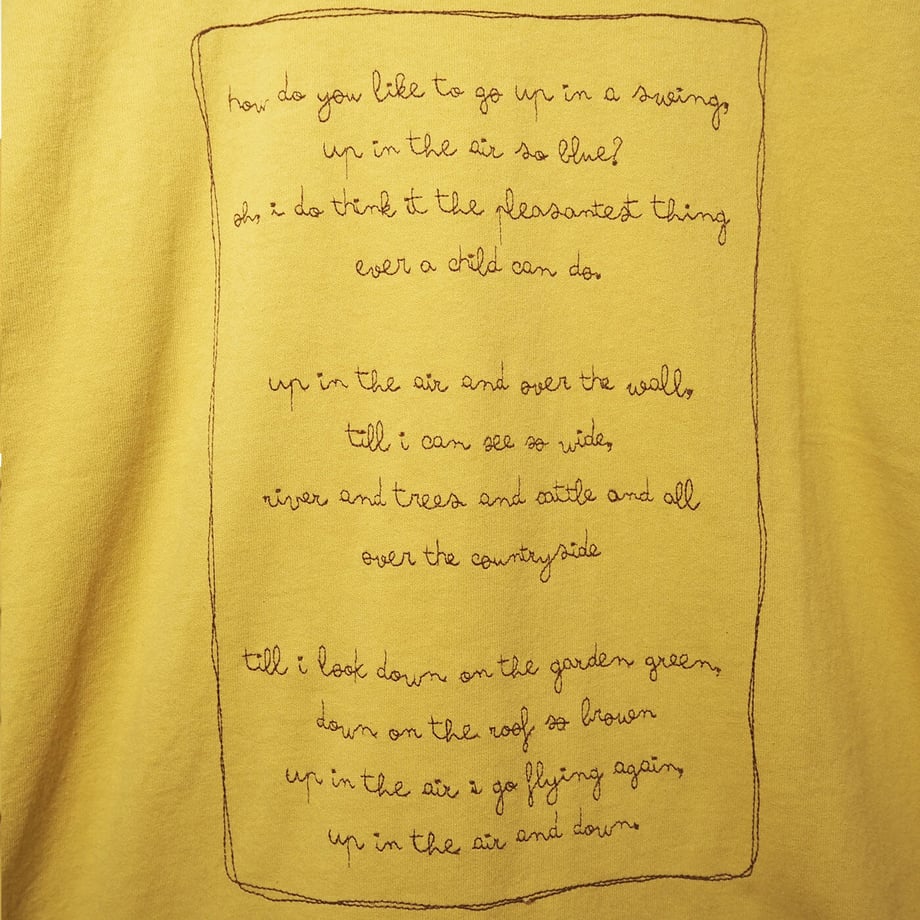 how do you like to go up in a swing,
up in the air so blue?
oh, i do think it the pleasantest thing
ever a child can do.
up in the air and over the wall,
till i can see so wide,
river and trees and cattle and all
over the countryside
till i look down on the garden green,
down on the roof so brown
up in the air i go flying again,
up in the air and down.